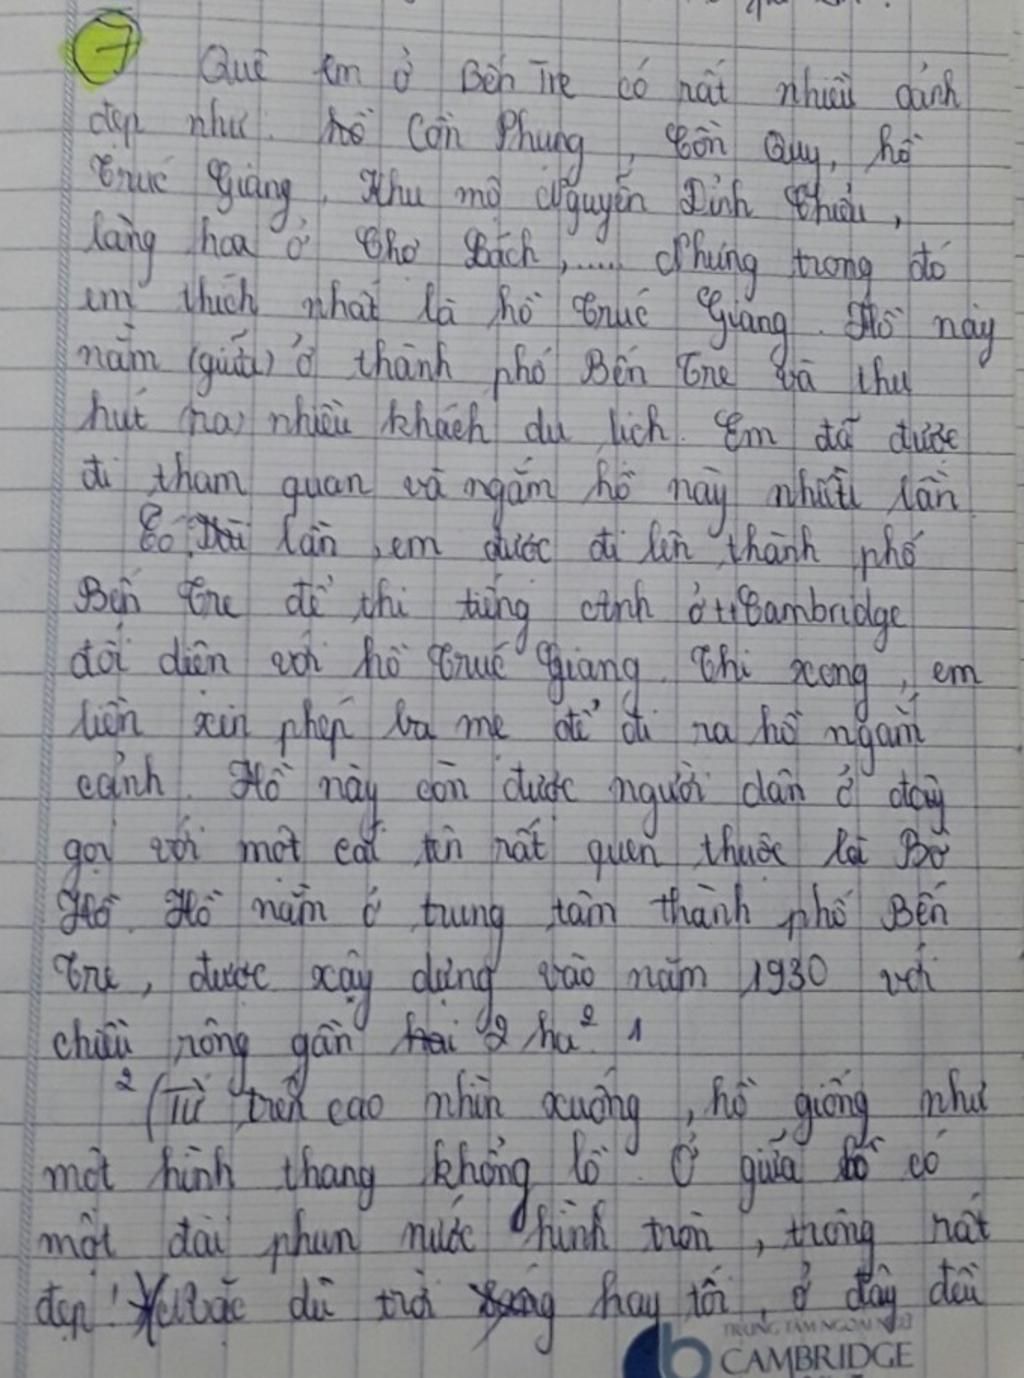 7
Quê em ở Bến Tre có rất nhiều cảnh
đẹp như: hồ Cồn Phụng, Cồn Quy, hồ
Trúc Giang, Khu mộ Nguyễn Đình Chiểu,
làng hoa ở Chợ Lách,..... Nhưng trong đó
em thích nhất là hồ Trúc Giang. Hồ này
nằm (giữa) ở thành phố Bến Tre và thu
hút (ra) nhiều khách du lịch. Em đã được
đi tham quan và ngắm hồ này nhiều lần.
Có lần, em được đi lên thành phố
Bến Tre để thi tiếng anh ở tt Cambridge
đối diện với hồ Trúc Giang. Thi xong, em
liền xin phép ba mẹ để đi ra hồ ngắm
cảnh. Hồ này còn được người dân ở đây
gọi với một cái tên rất quen thuộc là Bờ
Hồ. Hồ nằm ở trung tâm thành phố Bến
Tre, được xây dựng vào năm 1930 với
chiều rộng gần hai 2 ha². 1
2 (Từ trên cao nhìn xuống, hồ giống như
một hình thang khổng lồ. Ở giữa hồ có
một đài phun nước hình tròn, trông rất
đẹp! Mặc dù trời sáng hay tối, ở đây đều
TRUNG TÂM NGOẠI NGỮ
CAMBRIDGE